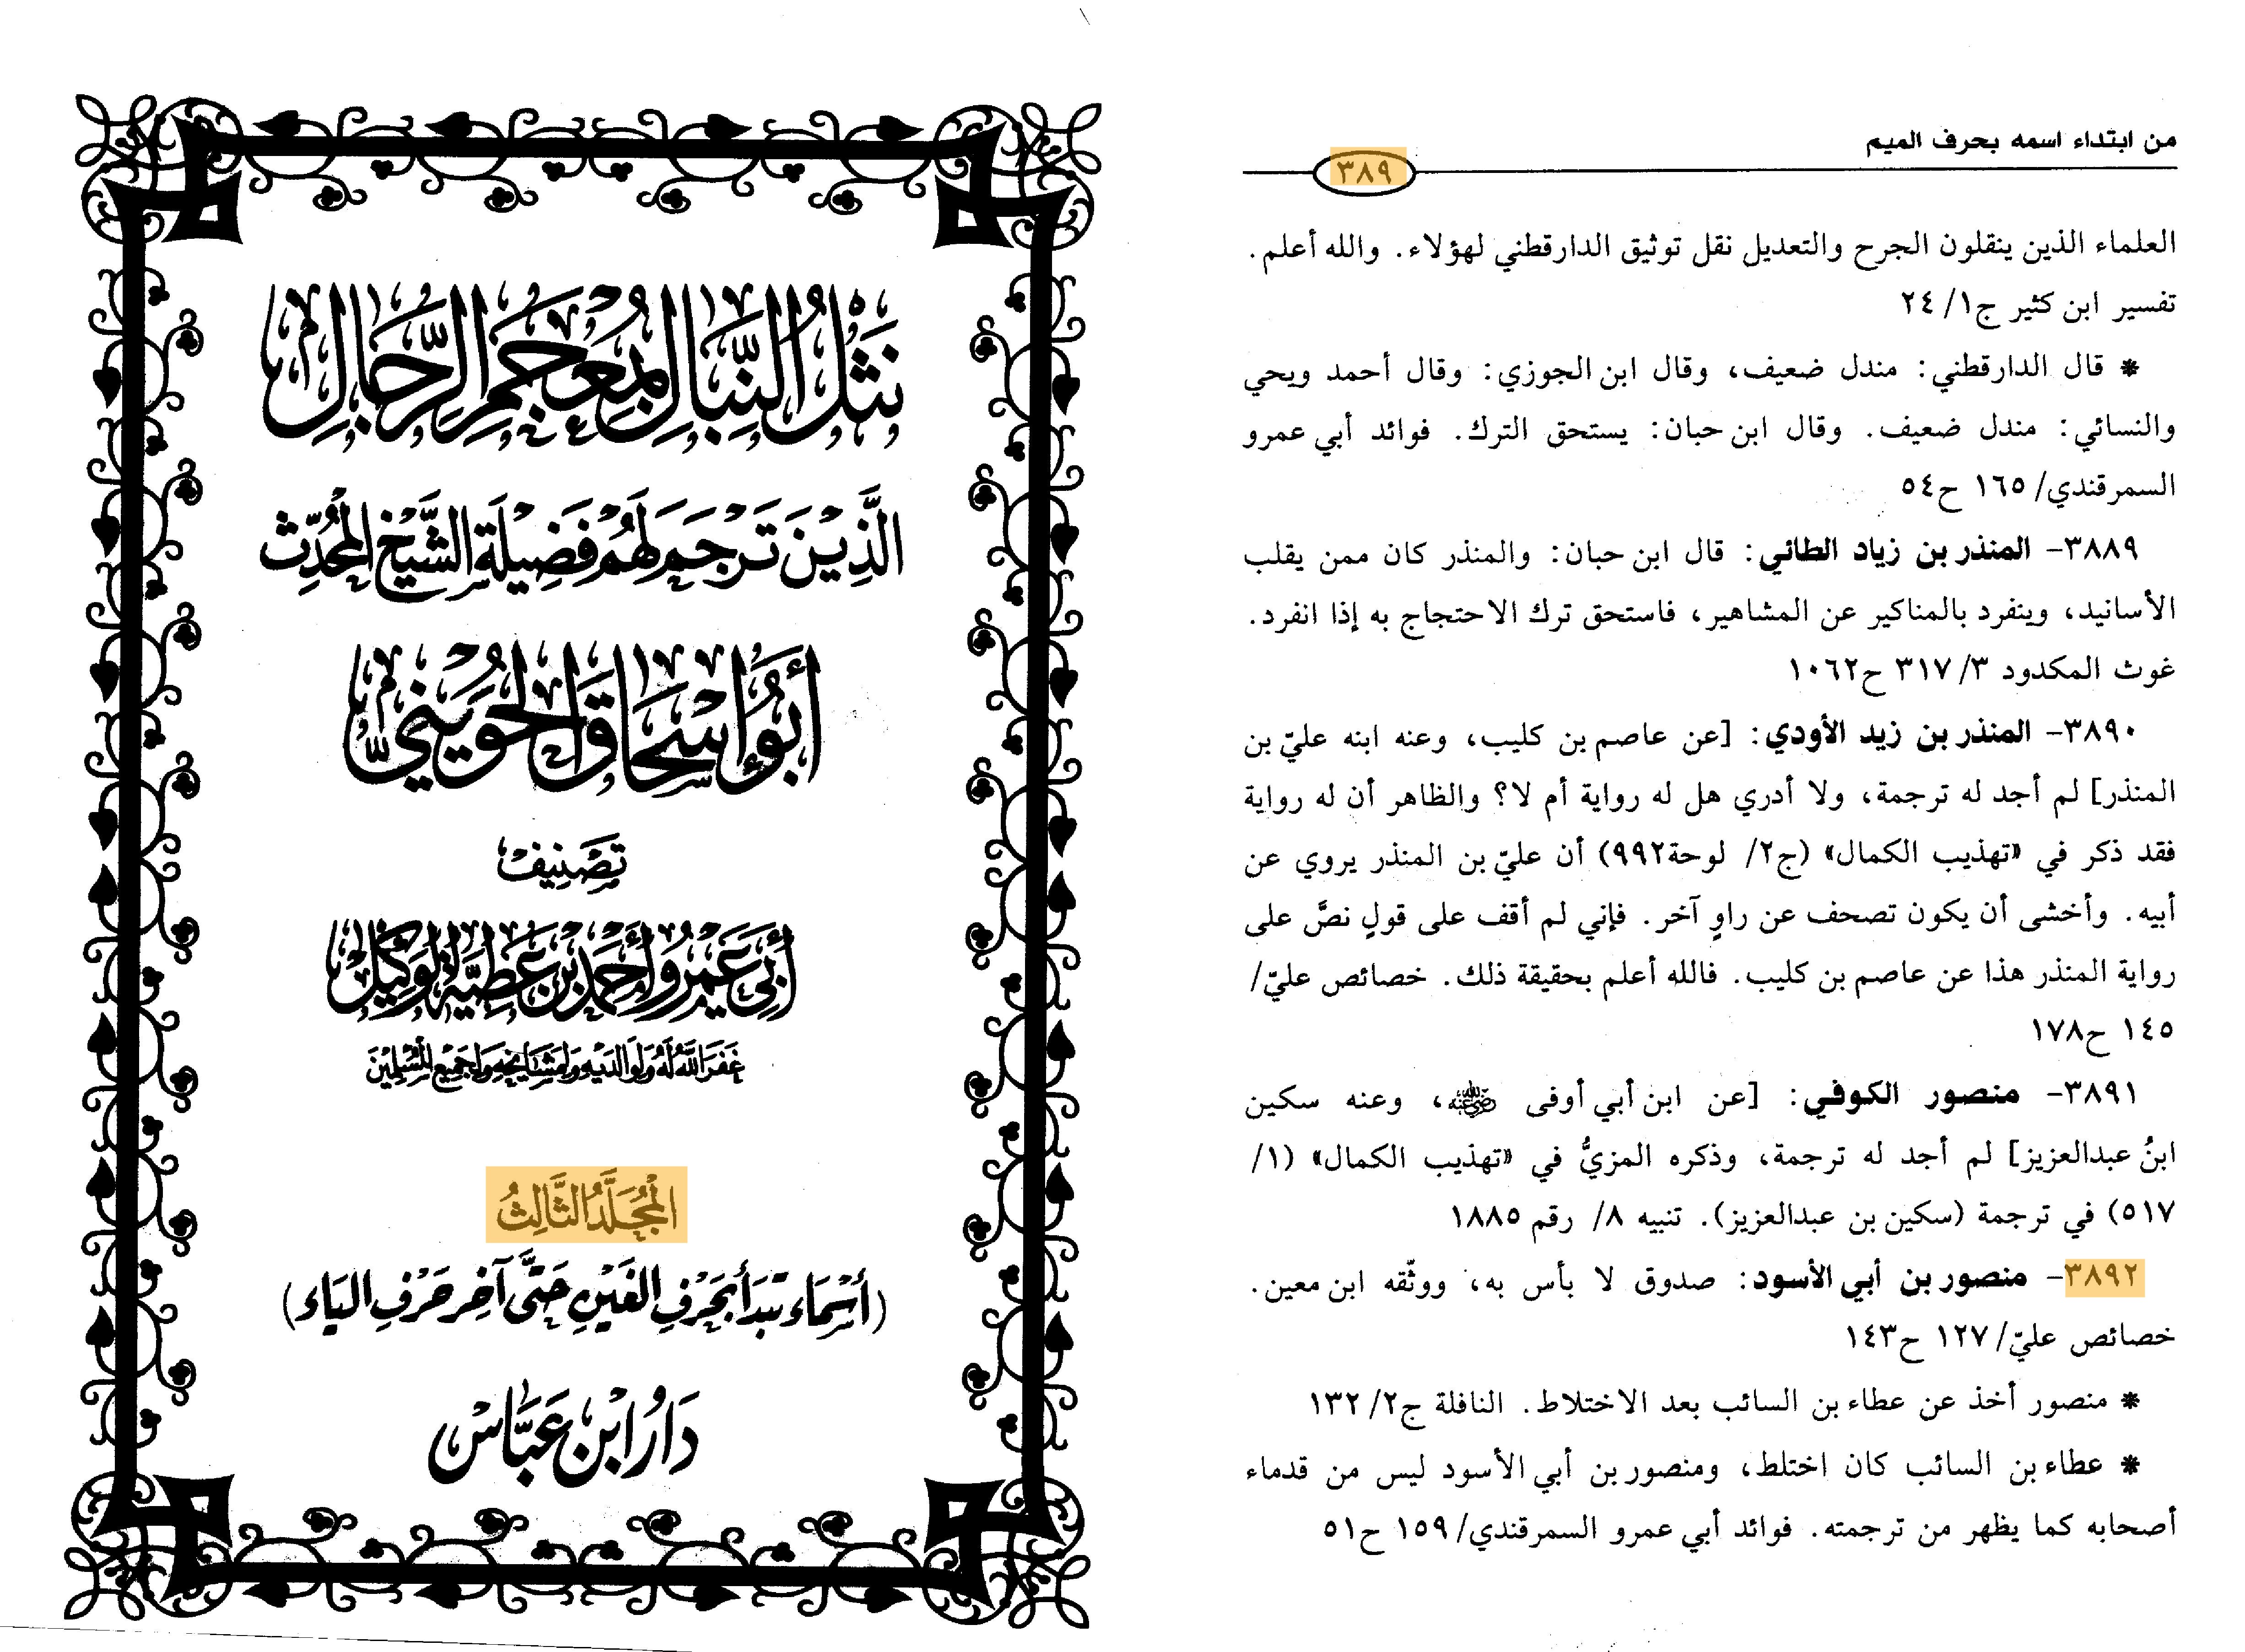 من ابتداء اسمه بحرف الميم
٣٨٩
العلماء الذين ينقلون الجرح والتعديل نقل توثيق الدارقطني لهؤلاء. والله أعلم.
تفسير ابن كثير ج١/ ٢٤
* قال الدارقطني: مندل ضعيف، وقال ابن الجوزي: وقال أحمد ويحي
والنسائي: مندل ضعيف. وقال ابن حبان: يستحق الترك. فوائد أبي عمرو
السمرقندي/ ١٦٥ ح٥٤
٣٨٨٩- المنذر بن زياد الطائي: قال ابن حبان: والمنذر كان ممن يقلب
الأسانيد، وينفرد بالمناكير عن المشاهير، فاستحق ترك الاحتجاج به إذا انفرد.
غوث المكدود ٣/ ٣١٧ ح١٠٦٢
٣٨٩٠- المنذر بن زيد الأودي: [عن عاصم بن كليب، وعنه ابنه عليّ بن
المنذر] لم أجد له ترجمة، ولا أدري هل له رواية أم لا؟ والظاهر أن له رواية
فقد ذكر في «تهذيب الكمال» (ج٢/ لوحة٩٩٢) أن عليّ بن المنذر يروي عن
أبيه. وأخشى أن يكون تصحف عن راوٍ آخر. فإني لم أقف على قولٍ نصَّ على
رواية المنذر هذا عن عاصم بن كليب. فالله أعلم بحقيقة ذلك. خصائص عليّ/
١٤٥ ح١٧٨
٣٨٩١- منصور الكوفي: [عن ابن أبي أوفى رضي الله عنه، وعنه سكين
ابنُ عبدالعزيز] لم أجد له ترجمة، وذكره المزيُّ في «تهذيب الكمال» (١/
٥١٧) في ترجمة (سكين بن عبدالعزيز). تنبيه ٨/ رقم ١٨٨٥
٣٨٩٢- منصور بن أبي الأسود: صدوق لا بأس به، ووثّقه ابن معين.
خصائص عليّ/ ١٢٧ ح١٤٣
* منصور أخذ عن عطاء بن السائب بعد الاختلاط. النافلة ج٢/ ١٣٢
* عطاء بن السائب كان اختلط، ومنصور بن أبي الأسود ليس من قدماء
أصحابه كما يظهر من ترجمته. فوائد أبي عمرو السمرقندي/ ١٥٩ ح٥١
نَثْلُ النِّبَالِ بِمُعْجَمِ الرِّجَالِ
الَّذِينَ تَرْجَمَ لَهُمْ فَضِيلَةُ الشَّيْخِ المُحَدِّث
أَبُو إِسْحَاقَ الحُوَيْنِيّ
تَصْنِيفُ
أَبِي عَمْرٍو أَحْمَدَ بْنِ عَطِيَّةَ الْوَكِيلِ
غَفَرَ اللهُ لَهُ وَلِوَالِدَيْهِ وَلِمَشَايِخِهِ وَلِجَمِيعِ المُسْلِمِينَ
الْمُجَلَّدُ الثَّالِثُ
(أَسْمَاء تَبْدَأ بِحَرْفِ الغَيْنِ حَتَّى آخِر حَرْفِ اليَاءِ)
دَارُ ابْنِ عَبَّاسْ